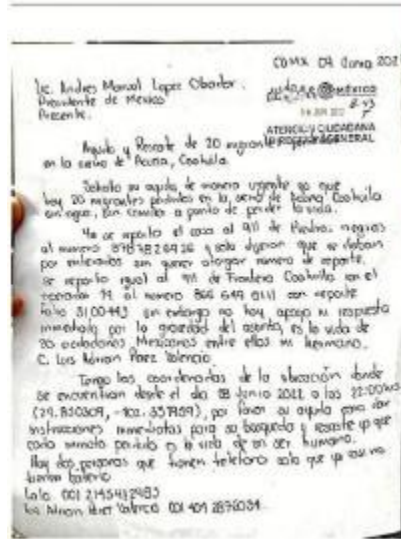 CDMX 09 Junio 202
Lic. Andres Manuel Lopez Obrador.
Presidente de México
Presente.
MÉXICO
ATENCIÓN CIUDADANA
Ayuda y Rescate de 20 migrantes
en la sierra de Acuña, Coahuila.
Solicito su ayuda de manera urgente ya que
hay 20 migrantes perdidos en la sierra de Acuña Coahuila
sin agua, sin comida a punto de perder la vida.
Ya se reporto el caso al 911 de Piedras negras
al numero y solo dijeron que se daban
por enterados sin querer otorgar numero de reporte.
se reporto igual al 911 de Frontera Coahuila con el
operador 14 al numero 866 649 0111 con reporte
folio 3100443 sin embargo no hay apoyo ni respuesta
inmediata por la gravedad del asunto, es la vida de
20 ciudadanos Mexicanos entre ellos mi hermano.
C. Luis Adrian Perez Valencio
Tengo las coordenadas de la ubicación donde
se encuentran desde el dia 08 Junio 2022 a las 22:00
por favor su ayuda para dar
instrucciones inmediatas para su busqueda y rescate ya que
cada minuto perdido es la vida de un ser humano.
Hay dos personas que tienen telefono solo que ya casi no
tienen bateria
Lalo 001
Luis Adrian Perez Valencio 001 409 2876034